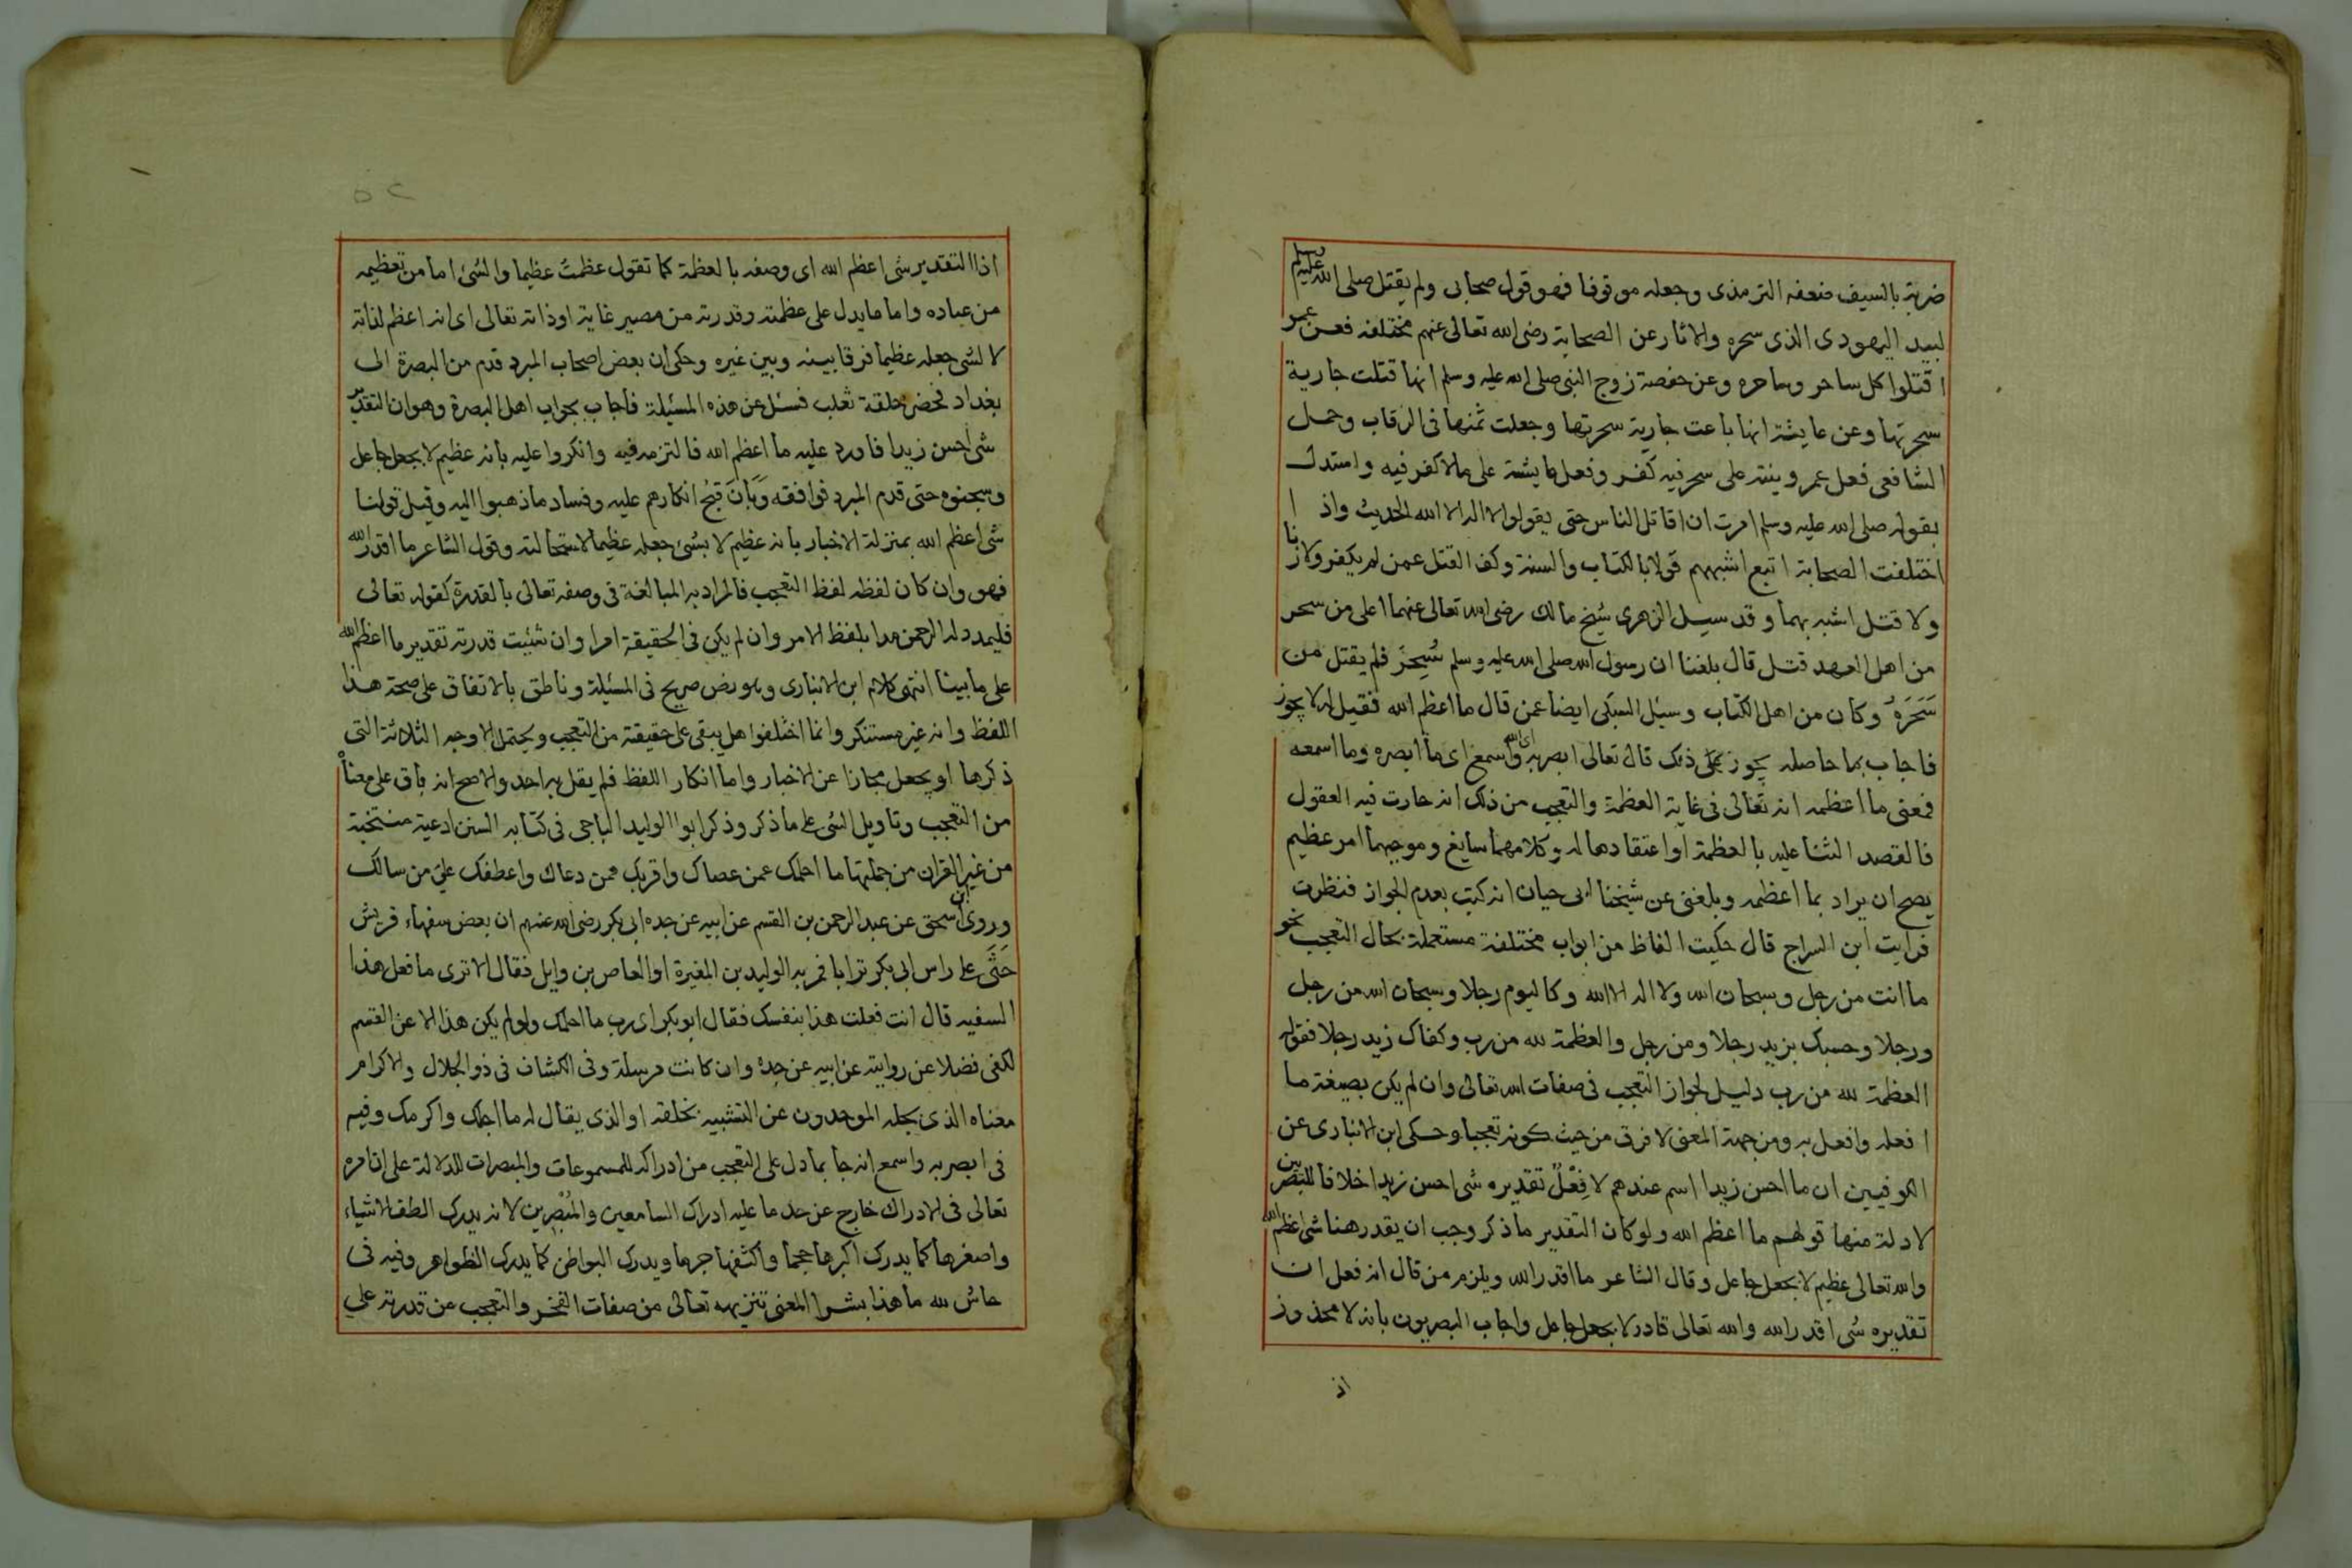 ضربة بالسيف ضعفه الترمذى وجعله موقوفا فهو قول صحابى ولم يقتل صلى الله عليه وسلم
لبيد اليهودى الذى سحره والاثار عن الصحابة رضى الله تعالى عنهم مختلفه فعن عمر
اقتلوا كل ساحر وساحره وعن حفصة زوج النبى صلى الله عليه وسلم انها قتلت جارية
سحرتها وعن عايشة انها باعت جارية سحرتها وجعلت ثمنها فى الرقاب وحمل
الشافعى فعل عمر وبنته على سحر فيه كفر وفعل عايشة على مالا كفر فيه واستدل
بقوله صلى الله عليه وسلم امرت ان اقاتل الناس حتى يقولوا لا اله الا الله الحديث واذا
اختلفت الصحابة اتبع اشبههم قولا بالكتاب والسنة وكف القتل عمن لم يكفر ولا زنا
ولا قتل اشبه بهما وقد سيل الزهرى شيخ مالك رضى الله تعالى عنهما اعلى من سحر
من اهل العهد قتل قال بلغنا ان رسول الله صلى الله عليه وسلم سُحِرَ فلم يقتل من
سَحَرَهُ وكان من اهل الكتاب وسيل السبكى ايضا عمن قال ما اعظم الله فقيل له لا يجوز
فاجاب بما حاصله يجوز ذلك قال تعالى ابصر به اى الله واسمع اى ما ابصره وما اسمعه
فمعنى ما اعظمه انه تعالى فى غاية العظمة والتعجب من ذلك انه حارت فيه العقول
فالقصد الثنا عليه بالعظمة او اعتقادها له وكلاهما سايغ وموجبهما امر عظيم
يصح ان يراد بما اعظمه وبلغنى عن شيخنا ابى حيان انه كتب بعدم الجواز فنظرت
فرايت ابن السراج قال حكيت الفاظ من ابواب مختلفة مستعملة بحال التعجب نحو
ما انت من رجل وسبحان الله ولا اله الا الله وكاليوم رجلا وسبحان الله من رجل
ورجلا وحسبك بزيد رجلا ومن رجل والعظمة لله من رب وكفاك زيد رجلا فقوله
العظمة لله من رب دليل لجواز التعجب فى صفات الله تعالى وان لم يكن بصيغة ما
افعله وافعل به ومن جهة المعنى لا فرق من حيث كونه تعجبا وحكى ابن الانبارى عن
الكوفيين ان ما احسن زيدا اسم عندهم لا فِعْلٌ تقديره شى احسن زيدا خلافا للبصريين
لادلة منها قولهم ما اعظم الله ولو كان التقدير ما ذكر وجب ان يقدر هنا شى اعظم الله
والله تعالى عظيم لا بجعل جاعل وقال الشاعر ما اقدر الله ويلزم من قال انه فعل ان
تقديره شى اقدر الله والله تعالى قادر لا بجعل جاعل واجاب البصريون بانه لا محذور
اذ
اذا التقدير شى اعظم الله اى وصفه بالعظمة كما تقول عظمتُ عظيما والشئ اما من تعظيمه
من عباده واما ما يدل على عظمته وقدرته من مصير غاية او ذاته تعالى اى انه اعظم لذاته
لا لشى جعله عظيما فرقا بينه وبين غيره وحكى ان بعض اصحاب المبرد قدم من البصرة الى
بغداد فحضر حلقة ثعلب فسئل عن هذه المسئلة فاجاب بجواب اهل البصرة وهو ان التقدير
شى احسن زيدا فاورد عليه ما اعظم الله فالتزمه فيه وانكروا عليه بانه عظيم لا بجعل جاعل
وسحبوه حتى قدم المبرد فوافقه وَبَانَ قبح انكارهم عليه وفساد ما ذهبوا اليه وقيل قولنا
شى اعظم الله بمنزلة الاخبار بانه عظيم لا بشئ جعله عظيما لاستحالته وقول الشاعر ما اقدر الله
فهو وان كان لفظه لفظ التعجب فالمراد به المبالغة فى وصفه تعالى بالقدرة كقوله تعالى
فليمدد له الرحمن مدا بلفظ الامر وان لم يكن فى الحقيقة امرا وان شئت قدرته تقدير ما اعظم الله
على ما بينا انتهى كلام ابن الانبارى وهو نص صريح فى المسئلة وناطق بالاتفاق على صحة هذا
اللفظ وانه غير مستنكر وانما اختلفوا هل يبقى على حقيقته من التعجب ويحتمل الاوجه الثلاثة التى
ذكرها او يجعل مجازا عن الاخبار واما انكار اللفظ فلم يقل به احد والاصح انه باق على معناه
من التعجب وتاويل الشى على ما ذكر وذكر ابوا الوليد الباجى فى كتابه السنن ادعية منتخبة
من غير القران من جملتها ما احلمك عمن عصاك واقربك ممن دعاك واعطفك على من سالك
وروى ابن اسحق عن عبد الرحمن بن القسم عن ابيه عن جده ابى بكر رضى الله عنهم ان بعض سفهاء قريش
حَثَى على راس ابى بكر ترابا فمر به الوليد بن المغيرة او العاص بن وايل فقال الا ترى ما فعل هذا
السفيه قال انت فعلت هذا بنفسك فقال ابو بكر اى رب ما احلمك ولو لم يكن هذا الا عن القسم
لكفى فضلا عن روايته عن ابيه عن جده وان كانت مرسلة وفى الكشاف فى ذو الجلال والاكرام
معناه الذى يجله الموحدون عن التشبيه بخلقه او الذى يقال له ما اجلك واكرمك وفيه
فى ابصر به واسمع انه جا بما دل على التعجب من ادراكه للمسموعات والمبصرات للدلالة على ان امره
تعالى فى الادراك خارج عن حد ما عليه ادراك السامعين والمُبْصِرين لانه يدرك الطف الاشياء
واصغرها كما يدرك اكبرها حجما واكثفها جرما ويدرك البواطن كما يدرك الظواهر وفيه فى
حاش لله ما هذا بشرا المعنى تنزيهه تعالى من صفات العجز والتعجب من قدرته على